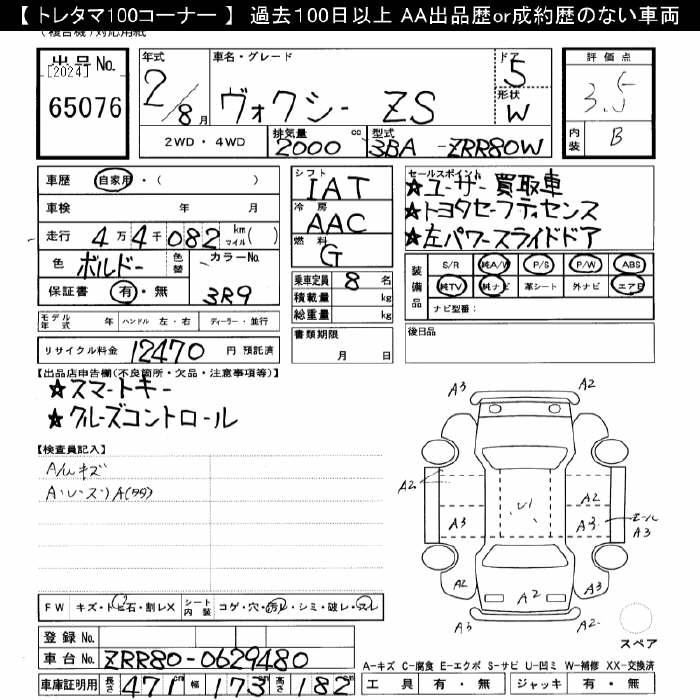 【 トレタマ100コーナー 】 過去100日以上 AA出品歴or成約歴のない車両
(複合機)対応用紙
出品No.
[2024]
65076
年式
2/8月
車名・グレード
ヴォクシー ZS
ドア
5
形状
W
2WD・4WD
排気量
2000 cc
型式
3BA -ZRR80W
評価点
3.5
内装
B
車歴 自家用・( )
車検 年 月
走行 4万4千082 km マイル( )
色 ボルドー 色替 カラーNo.
保証書 有・無 3R9
モデル年式 年 ハンドル 左・右 ディーラー・並行
リサイクル料金 12470 円 預託済
シフト
IAT
冷房
AAC
燃料
G
乗車定員 8 名
積載量 kg
総重量 kg
書類期限
月 日
セールスポイント
★ユーザー買取車
★トヨタセーフティセンス
★左パワースライドドア
装備品
S/R 純A/W P/S P/W ABS
純TV 純ナビ 革シート 外ナビ エアB
ナビ型番:
後日品
【出品店申告欄(不良箇所・欠品・注意事項等)】
★スマートキー
★クルーズコントロール
【検査員記入】
A/Wキズ
A3 A2
A3 A2
A2 A2
A3 A3
A2 A2 A2 A3
FW キズ・トビ石・割レX シート内装 コゲ・穴・汚レ・シミ・破レ・スレ
登録No.
車台No. ZRR80-0629480
車庫証明用 長さ 471cm 幅 173cm 高さ 182cm
スペア
A-キズ C-腐食 E-エクボ S-サビ U-凹ミ W-補修 XX-交換済
工具 有・無 ジャッキ 有・無